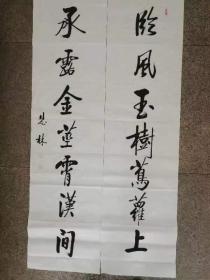 臨風玉樹蔦蘿上
承露金莖霄漢间
林